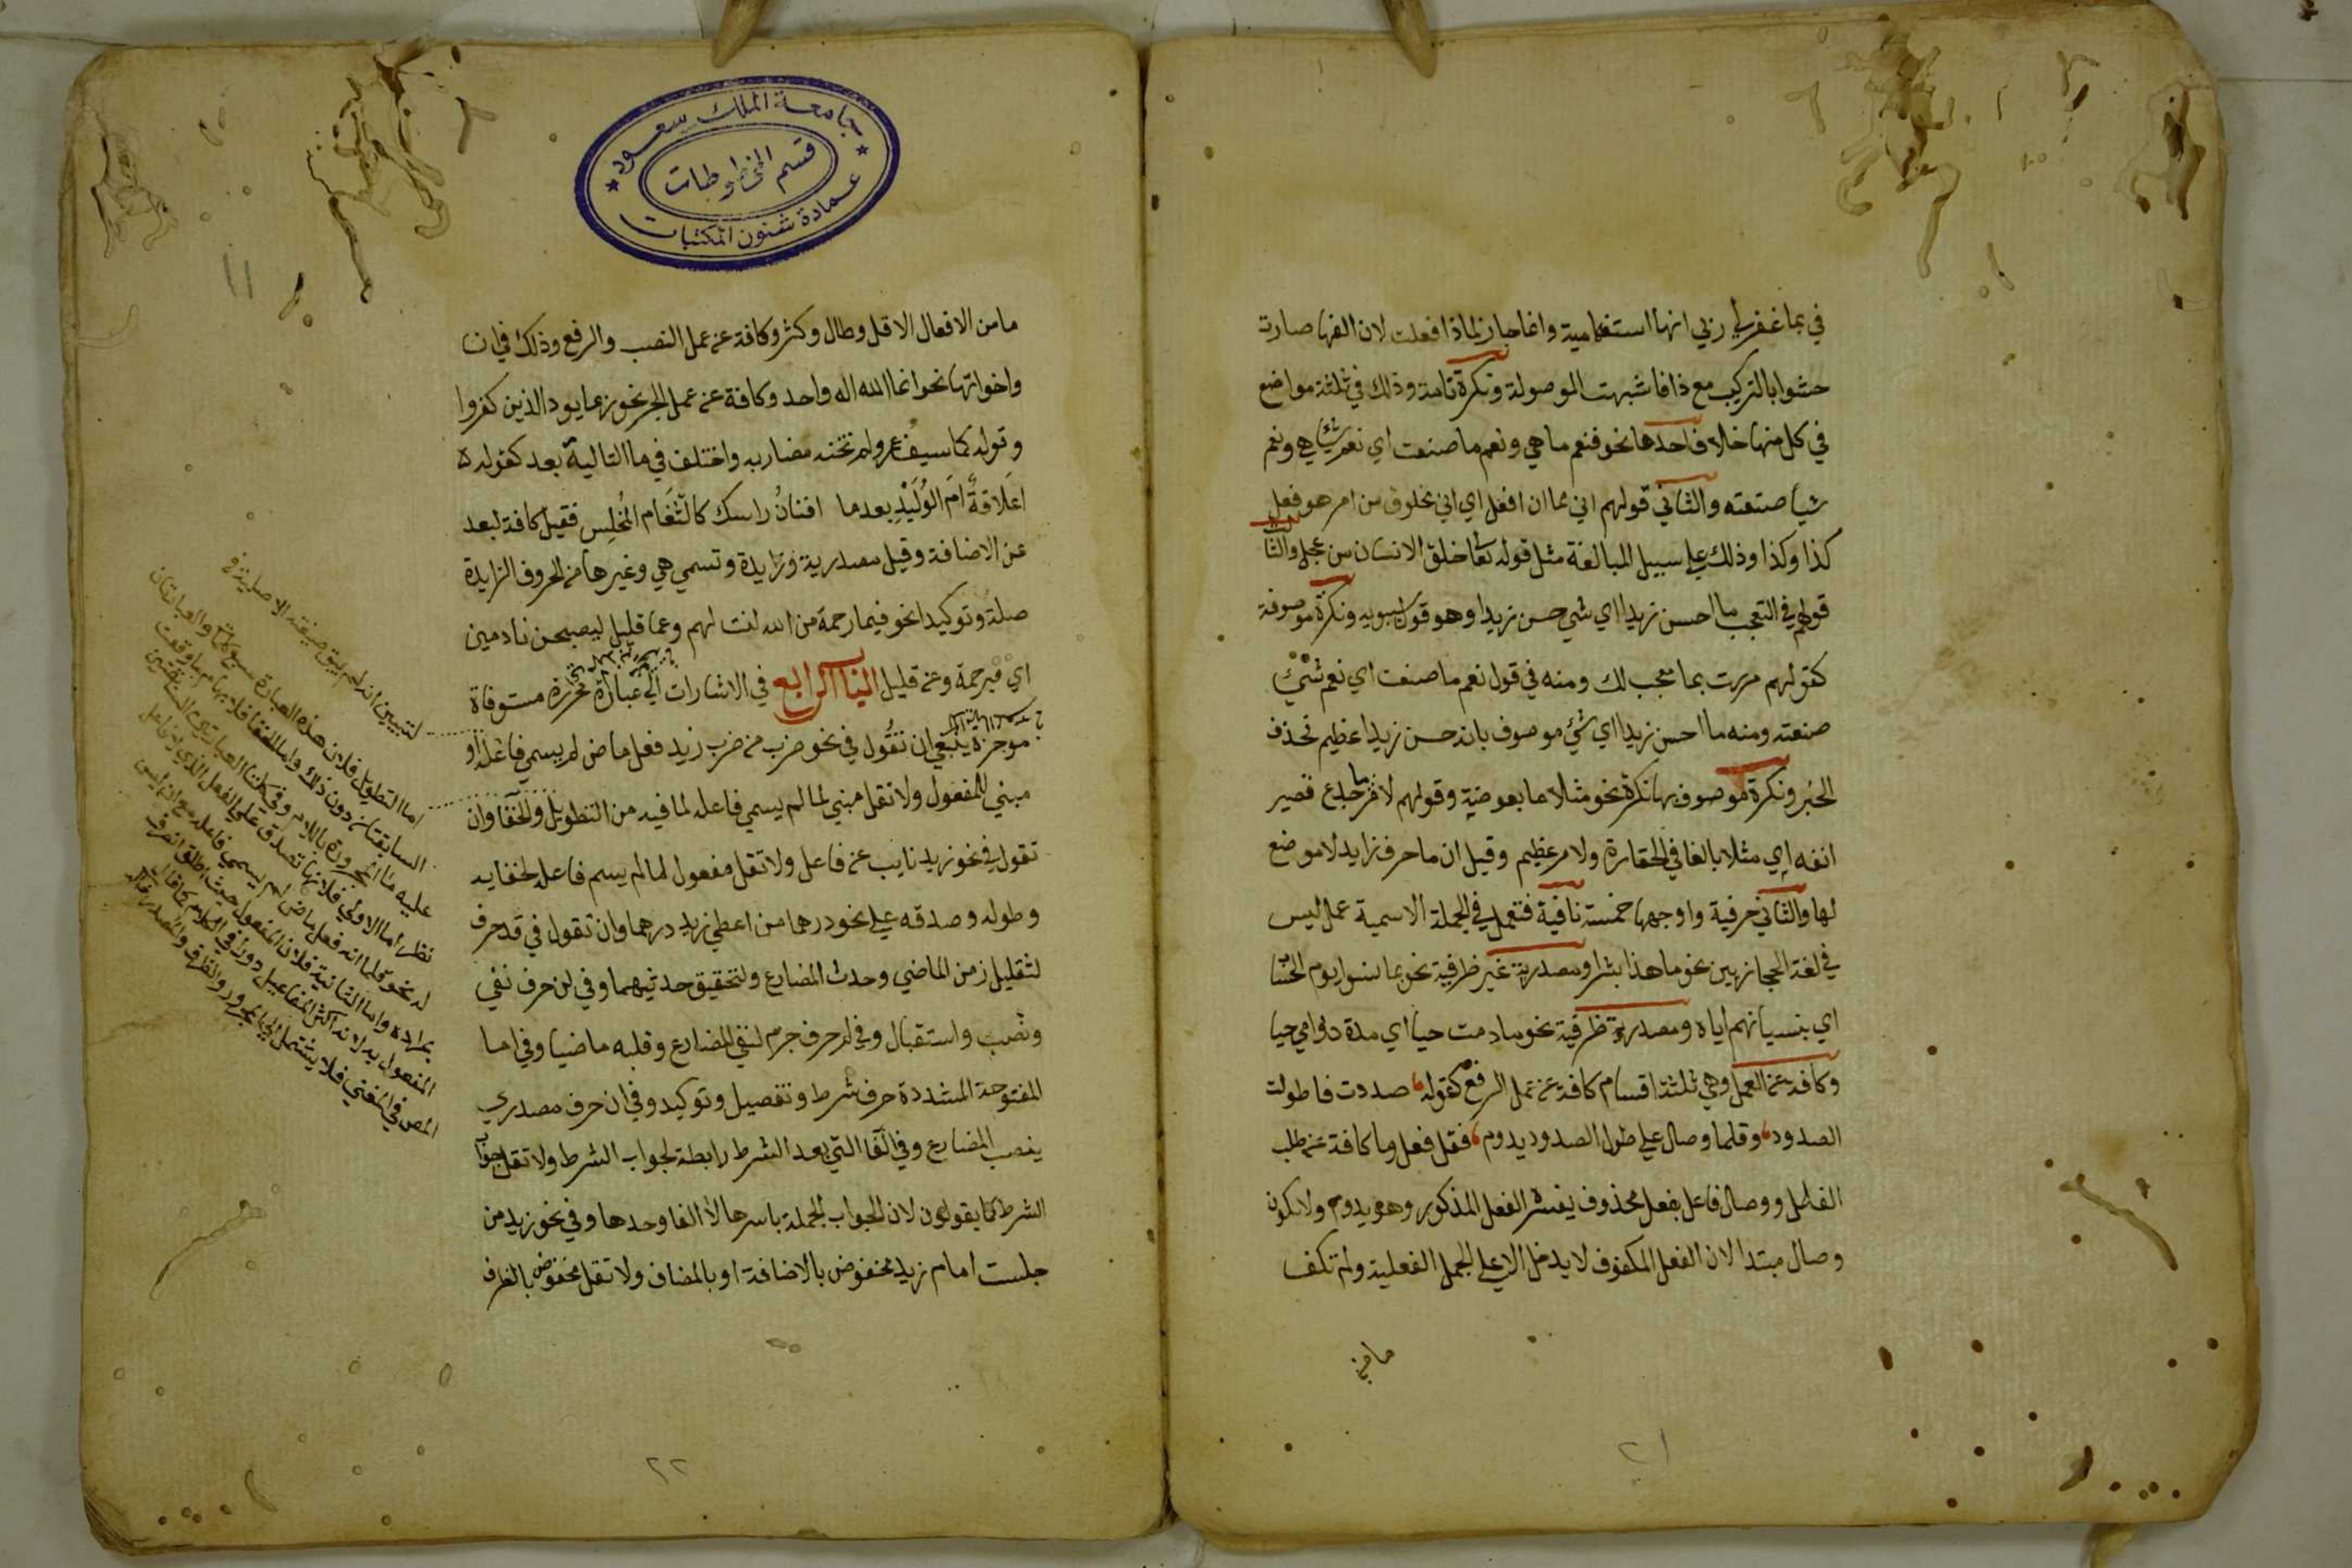 في بما غفر لي ربي انها استفهامية وانما جاز لماذا فعلت لان الفها صارت
حشوا بالتركيب مع ذا فاشبهت الموصولة ونكرة تامة وذلك في ثلثة مواضع
في كل منها خلاف احدها نحو فنعم ما هي ونعم ما صنعت اي نعم شيا هي ونعم
شيا صنعته والثاني قولهم اني مما ان افعل اي اني مخلوق من امر هو فعل
كذا وكذا وذلك علي سبيل المبالغة مثل قوله تعا خلق الانسان من عجل والثالث
قولهم في التعجب ما احسن زيدا اي شي حسن زيدا وهو قول سيبويه ونكرة موصوفة
كقولهم مررت بما معجب لك ومنه في قول نعم ما صنعت اي نعم شئ
صنعته ومنه ما احسن زيدا اي شئ موصوف بانه حسن زيدا عظيم فحذف
الخبر ونكرة موصوف بها نكرة نحو مثلا ما بعوضة وقولهم لامر ما جدع قصير
انفه اي مثلا بالغا في الحقارة ولامر عظيم وقيل ان ما حرف زايد لا موضع
لها والثاني حرفية واوجهها خمسة نافية فتعمل في الجملة الاسمية عمل ليس
في لغة الحجازيين نحو ما هذا بشرا ومصدرية غير ظرفية نحو بما نسوا يوم الحساب
اي بنسيانهم اياه ومصدرية ظرفية نحو ما دمت حيا اي مدة دوامي حيا
وكافة عن العمل وهي ثلثة اقسام كافة عن عمل الرفع كقوله صددت فاطولت
الصدود وقلما وصال علي طول الصدود يدوم فقل فعل وما كافة عن طلب
الفاعل ووصال فاعل بفعل محذوف يفسره الفعل المذكور وهو يدوم ولا يكون
وصال مبتدا لان الفعل المكفوف لا يدخل الا علي الجمل الفعلية ولم تكف
ما من
٢١
جامعة الملك سعود
قسم المخطوطات
عمادة شئون المكتبات
ما من الافعال الا قل وطال وكثر وكافة عن عمل النصب والرفع وذلك في ان
واخواتها نحو انما الله اله واحد وكافة عن عمل الجر نحو ربما يود الذين كفروا
وقوله كما سيف عمرو لم تخنه مضاربه واختلف في ما التالية بعد كقوله
اعلاقةً ام الوُلَيْدِ بعدما افنانُ راسك كالثَّغام المُخلِس فقيل كافة لبعد
عن الاضافة وقيل مصدرية وزايدة وتسمي هي وغيرها من الحروف الزايدة
صلة وتوكيدا نحو فبما رحمة من الله لنت لهم وعما قليل ليصبحن نادمين
اي فبرحمة وعن قليل الباب الرابع في الاشارات الي عبارة محررة مستوفاة
موجزة ينبغي ان تقول في نحو ضرب من ضرب زيد فعل ماض لم يسمي فاعله او
مبني للمفعول ولا تقل مبني لما لم يسمي فاعله لما فيه من التطويل والخفا وان
تقول في نحو زيد نايب عن فاعل ولا تقل مفعول لما لم يسم فاعله لخفايه
وطوله وصدقه علي نحو درهما من اعطي زيد درهما وان تقول في قد حرف
لتقليل زمن الماضي وحدث المضارع ولتحقيق حدثيهما وفي لن حرف نفي
ونصب واستقبال وفي لم حرف جزم لنفي المضارع وقلبه ماضيا وفي اما
المفتوحة المشددة حرف شرط وتفصيل وتوكيد وفي ان حرف مصدري
ينصب المضارع وفي الفا التي بعد الشرط رابطة لجواب الشرط ولا تقل جواب
الشرط كما يقولون لان الجواب الجملة باسرها لا الفا وحدها وفي نحو زيد من
جلست امام زيد مخفوض بالاضافة او بالمضاف ولا تقل مخفوض بالظرف
اما التطويل فلان هذه العبارة سبع كلمات والعبارتان
السابقتان دون ذلك واما الخفا فلابهام ما وقعت
عليه ما المجرورة باللام وفي كلتا العبارتين السابقتين
نظر اما الاولي فلانها تصدق علي الفعل الذي لا فاعل
له نحو قلما انه فعل ماض لم يسمي فاعله مع انه ليس
بمراده واما الثانية فلان المفعول حيث اطلق انصرف
المفعول به لانه اكثر المفاعيل دورا في الكلام كما قال
المص في المغني فلا يشتمل المجرور والظرف والمصدر
٢٢